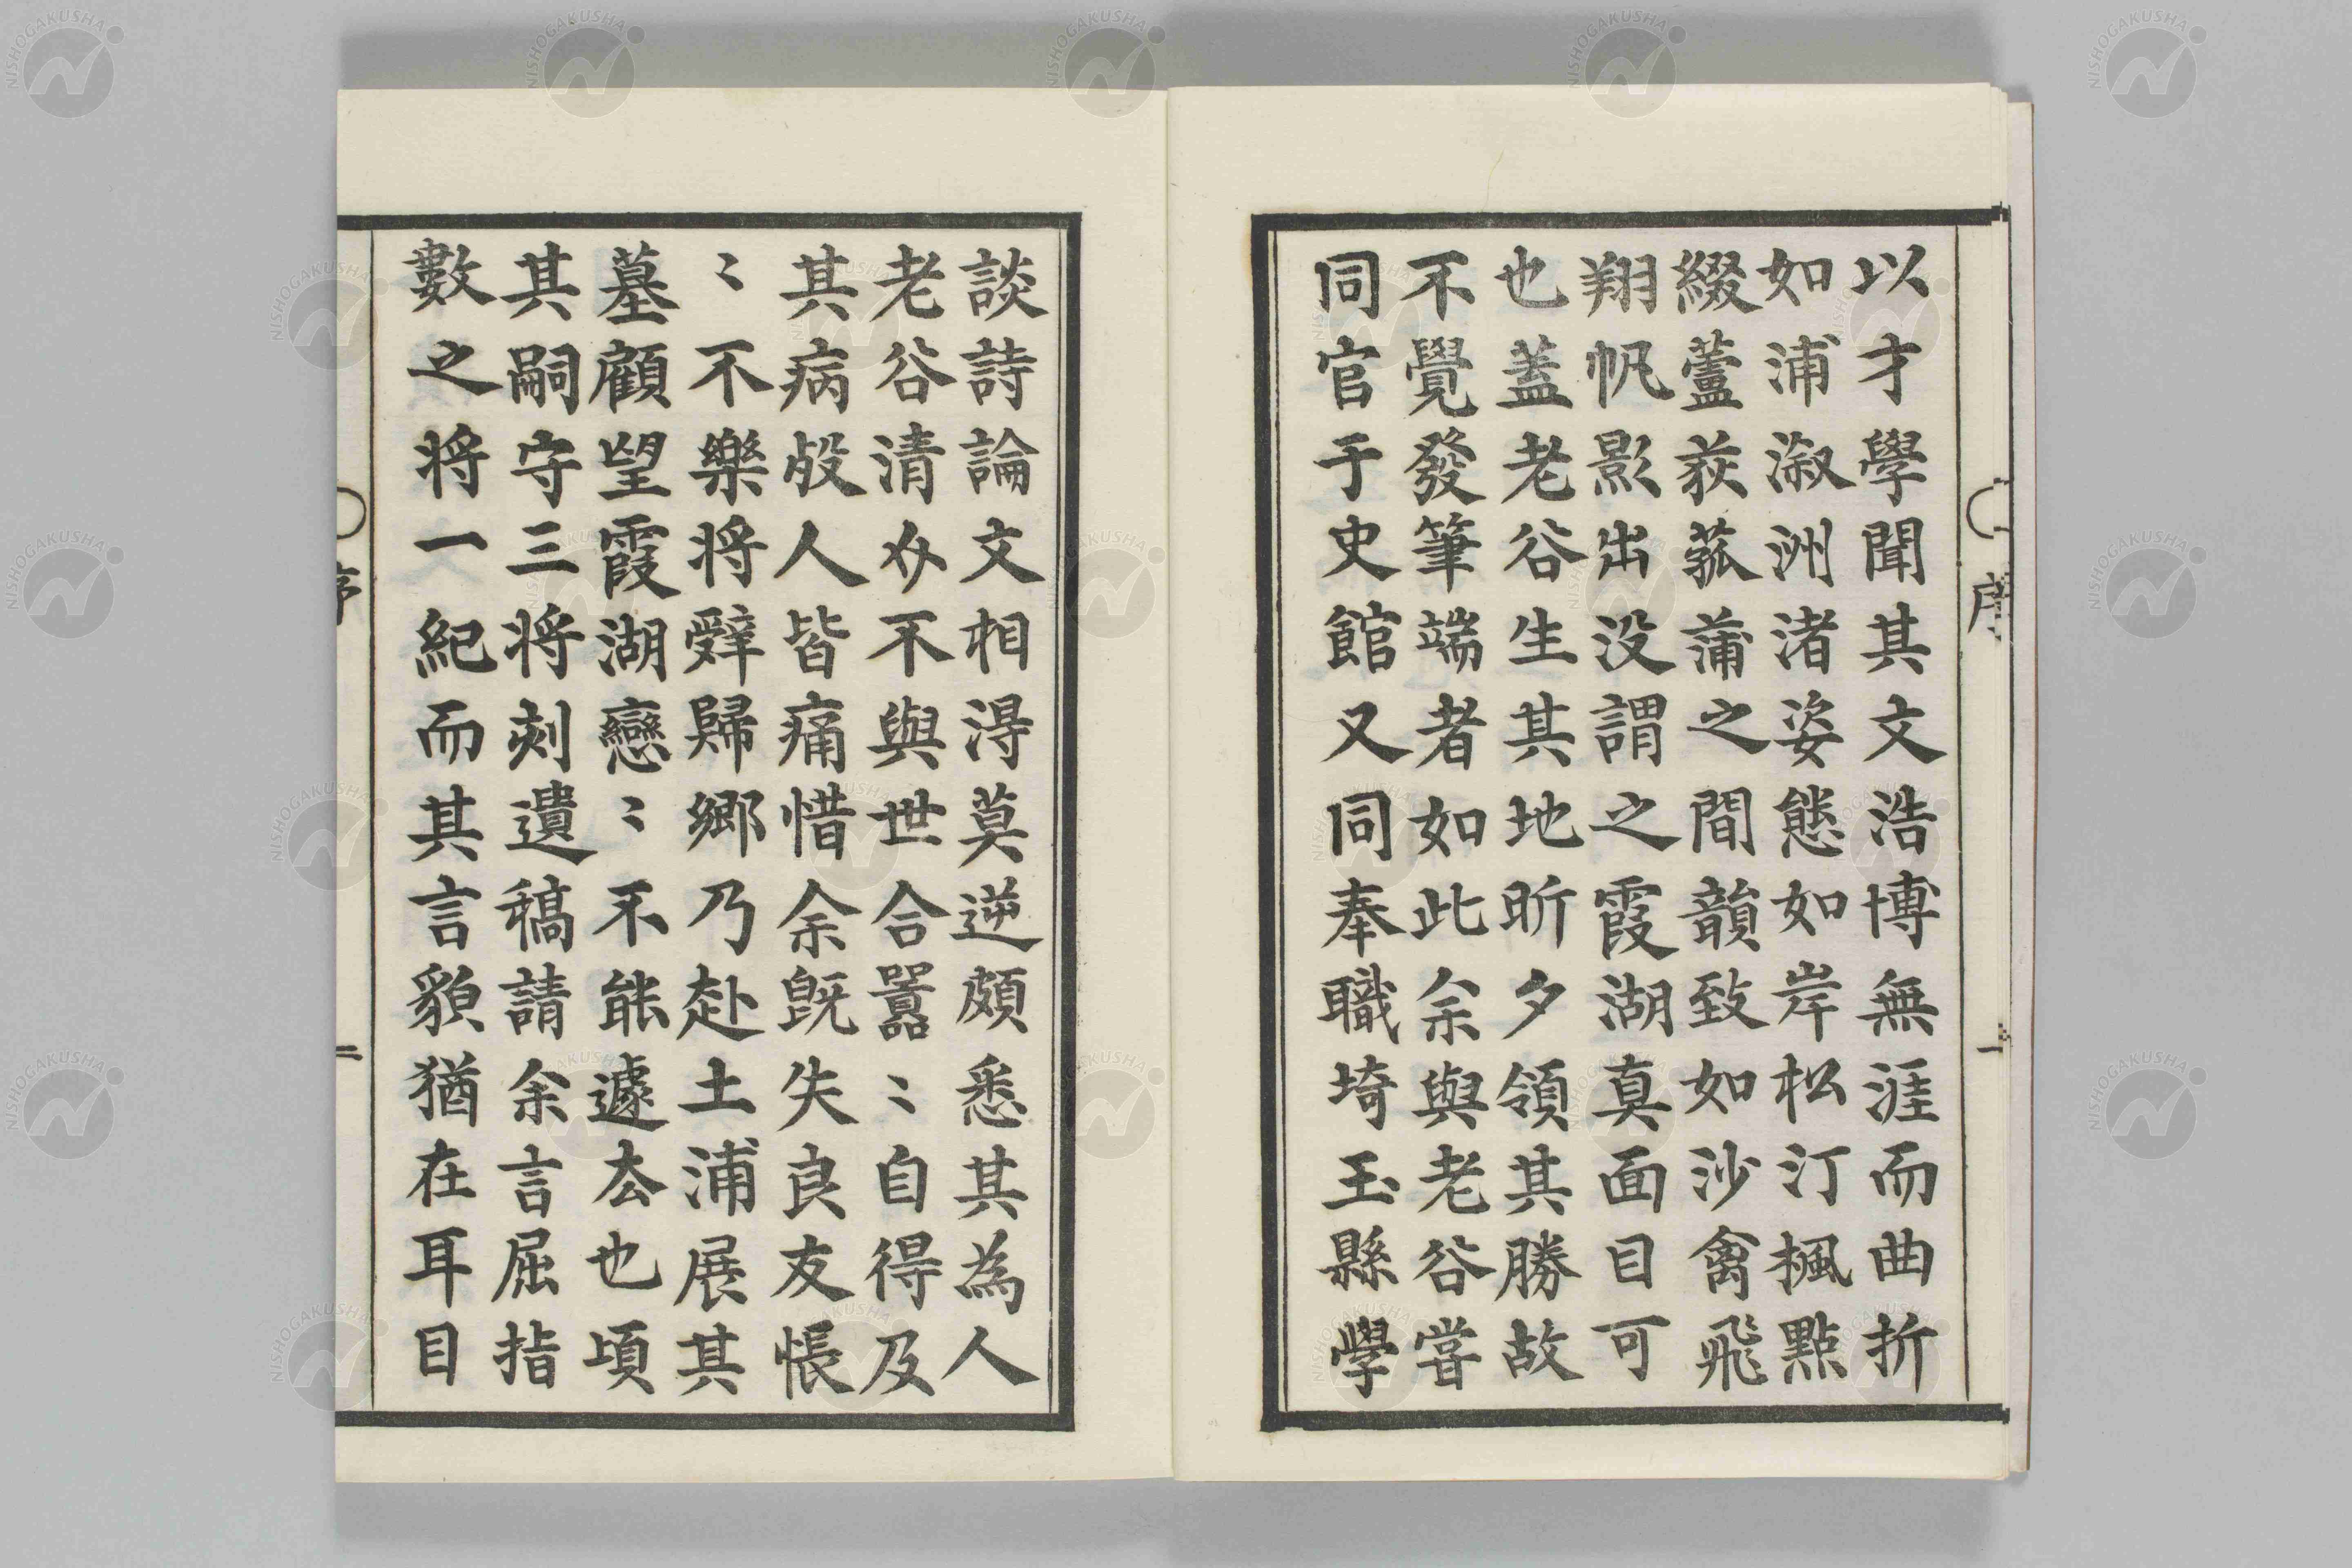 以才學聞其文浩博無涯而曲折
如浦溆洲渚姿態如岸松汀楓點
綴蘆荻菰蒲之間韻致如沙禽飛
翔帆影出没謂之霞湖真面目可
也蓋老谷生其地昕夕領其勝故
不覺發筆端者如此余與老谷嘗
同官于史館又同奉職埼玉縣學
序
一
談詩論文相淂莫逆頗悉其為人
老谷清介不與世合囂〻自得及
其病歿人皆痛惜余既失良友悵
〻不樂将辭歸鄉乃赴土浦展其
墓顧望霞湖戀〻不能遽去也頃
其嗣守三将刻遺稿請余言屈指
數之将一紀而其言貌猶在耳目
序
二
NISHOGAKUSHA